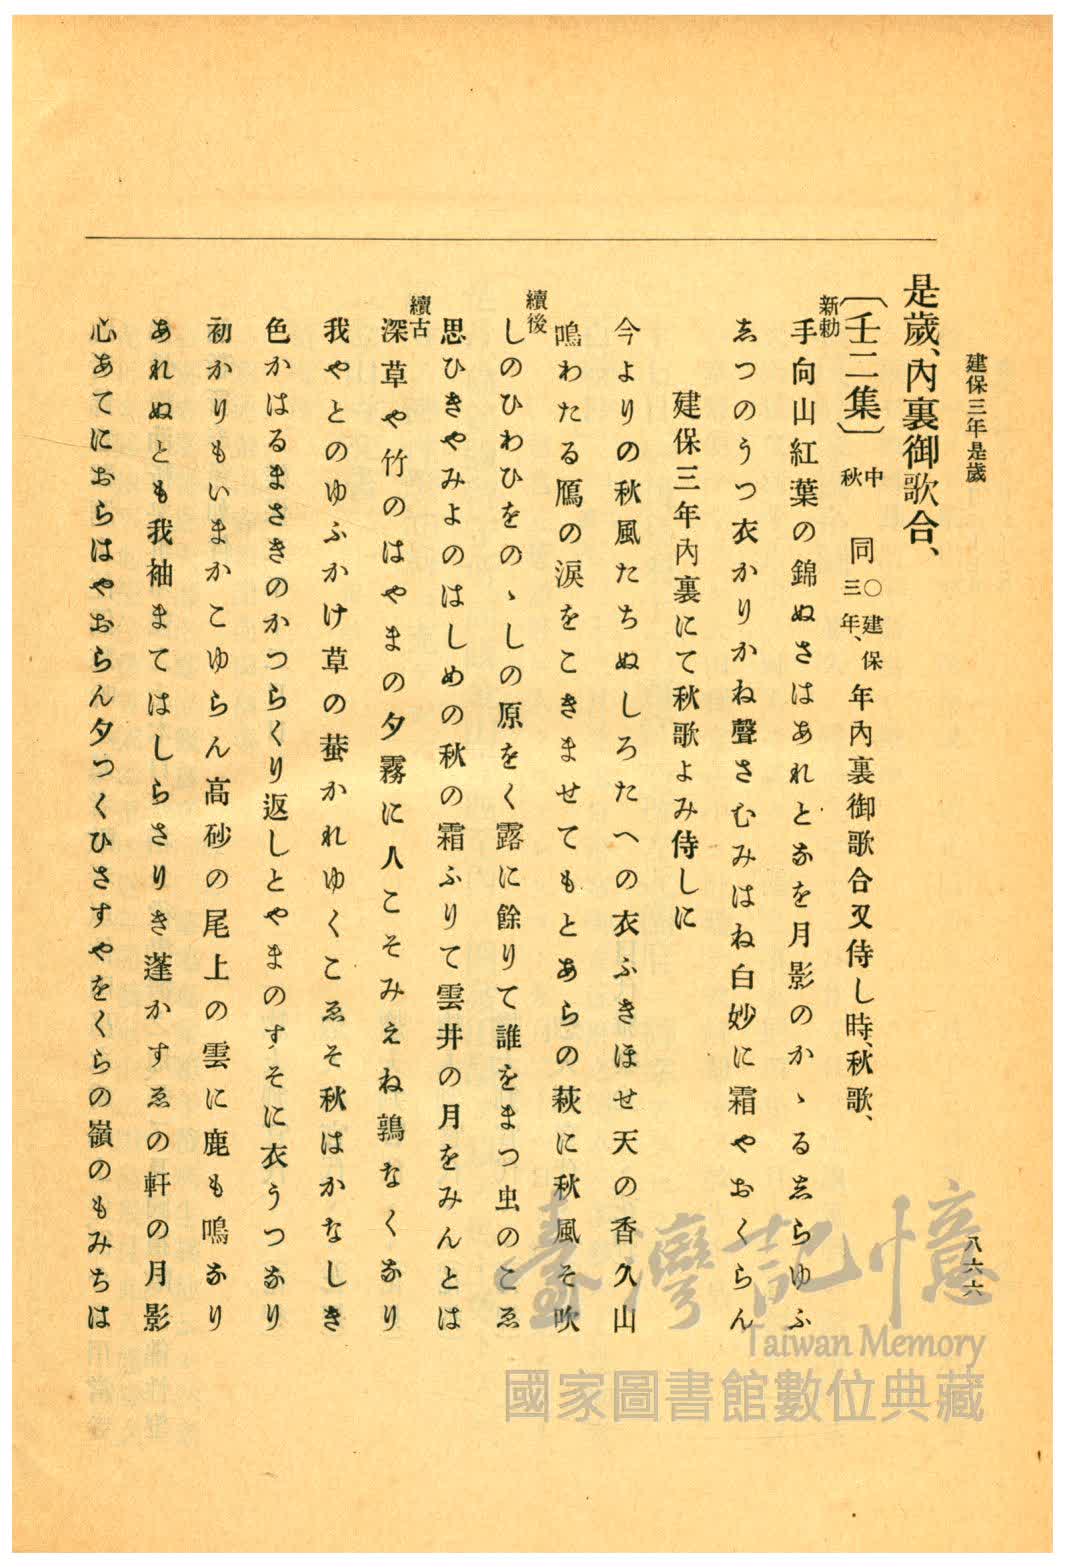 建保三年是歳
八六六
是歳、內裏御歌合、
〔壬二集〕中秋 同〇建保三年、年內裏御歌合又侍し時、秋歌、
新勅
手向山紅葉の錦ぬさはあれとなを月影のかゝるしらゆふ
しつのうつ衣かりかね聲さむみはね白妙に霜やおくらん
建保三年內裏にて秋歌よみ侍しに
今よりの秋風たちぬしろたへの衣ふきほせ天の香久山
鳴わたる鴈の淚をこきませてもとあらの萩に秋風そ吹
續後
しのひわひをのゝしの原をく露に餘りて誰をまつ虫のこゑ
思ひきやみよのはしめの秋の霜ふりて雲井の月をみんとは
續古
深草や竹のはやまの夕霧に人こそみえね鶉なくなり
我やとのゆふかけ草の蛬かれゆくこゑそ秋はかなしき
色かはるまさきのかつらくり返しとやまのすそに衣うつなり
初かりもいまかこゆらん高砂の尾上の雲に鹿も鳴なり
あれぬとも我袖まてはしらさりき蓬かすゑの軒の月影
心あてにおらはやおらん夕つくひさすやをくらの嶺のもみちは
臺灣記憶
Taiwan Memory
國家圖書館數位典藏